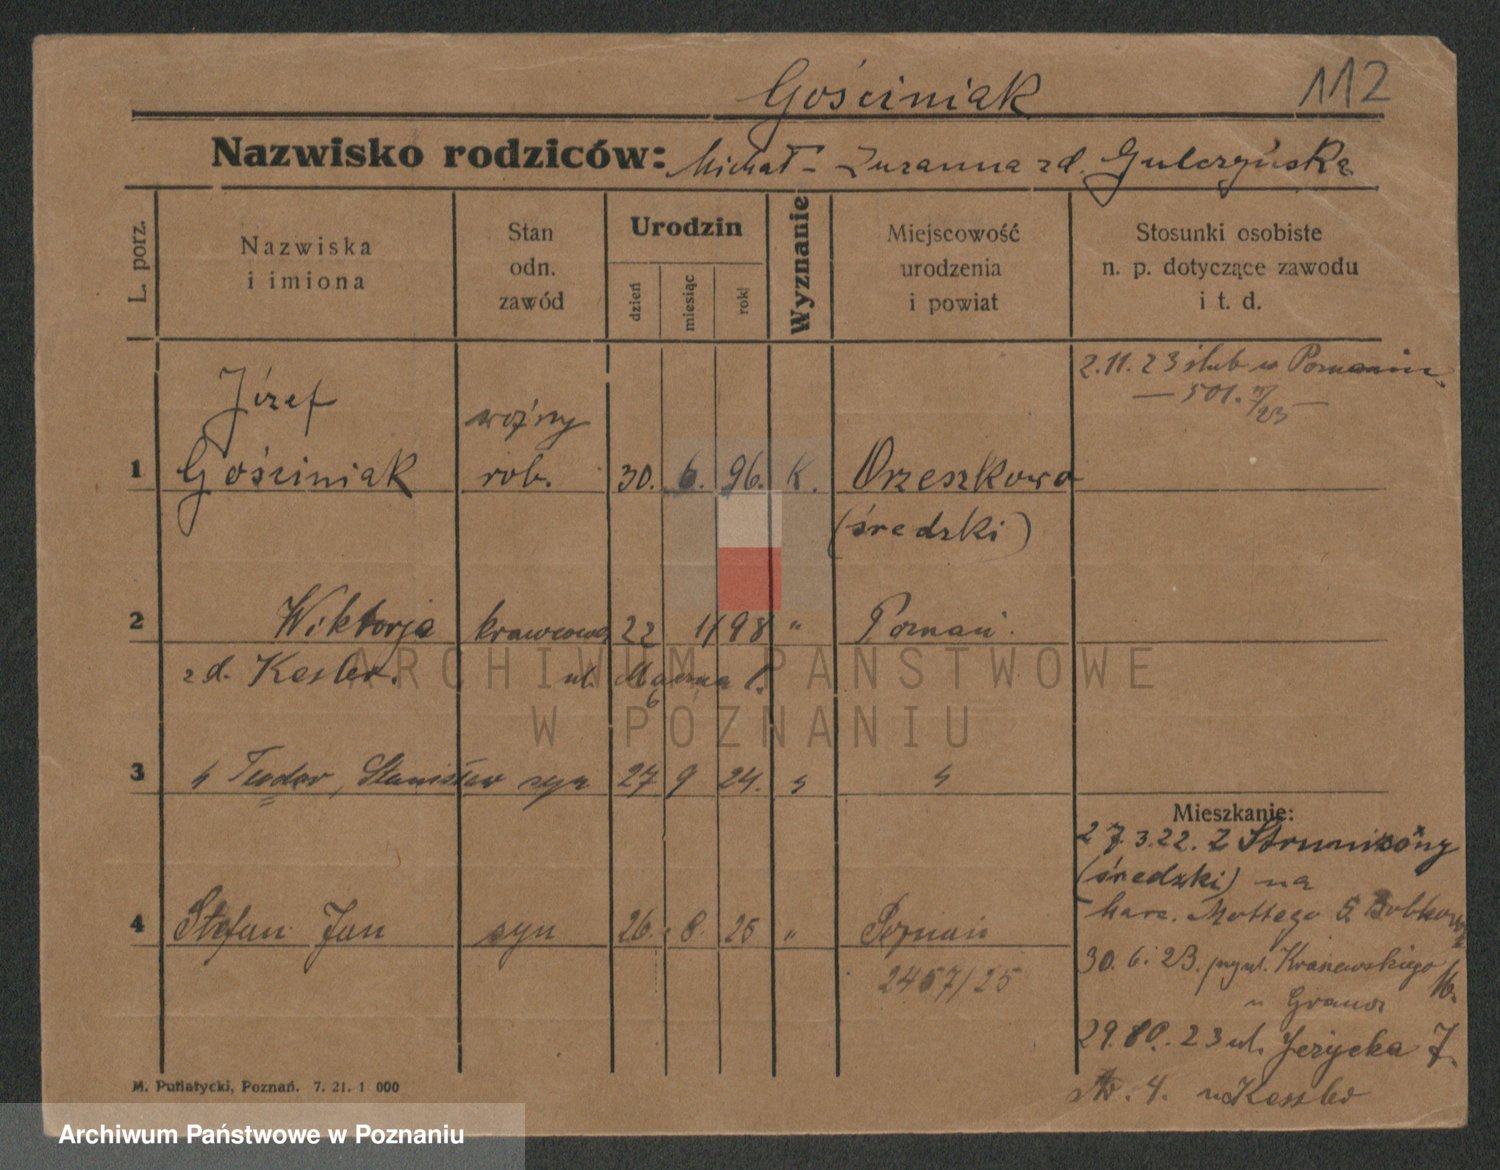 Gościniak 112
Nazwisko rodziców: Michał - Zuzanna zd. Gulczyńska
L. porz.
Nazwiska
i imiona
Stan
odn.
zawód
Urodzin
dzień
miesiąc
rok
Wyznanie
Miejscowość
urodzenia
i powiat
Stosunki osobiste
n. p. dotyczące zawodu
i t. d.
2.11.23 ślub w Poznaniu
— 501. /23 —
Józef woźny
1 Gościniak rob. 30. 6. 96. K. Orzeszkowo
(średzki)
2 Wiktorja krawcowa 22 11 98 " Poznań.
zd. Kesler. ul.
3 " Teodor, Stanisław syn 27 9 24. " "
4 Stefan Jan syn 26. 8. 25 " Poznań
2457/25
Mieszkanie:
27.3.22. z
(średzki) na
Mottego 5
30.6.23. Kraszewskiego 16.
u
29. 23 ul. Jeżycka 7.
4. u Kessler
M. Putiatycki, Poznań. 7. 21. 1 000
ARCHIWUM PAŃSTWOWE
W POZNANIU
Archiwum Państwowe w Poznaniu